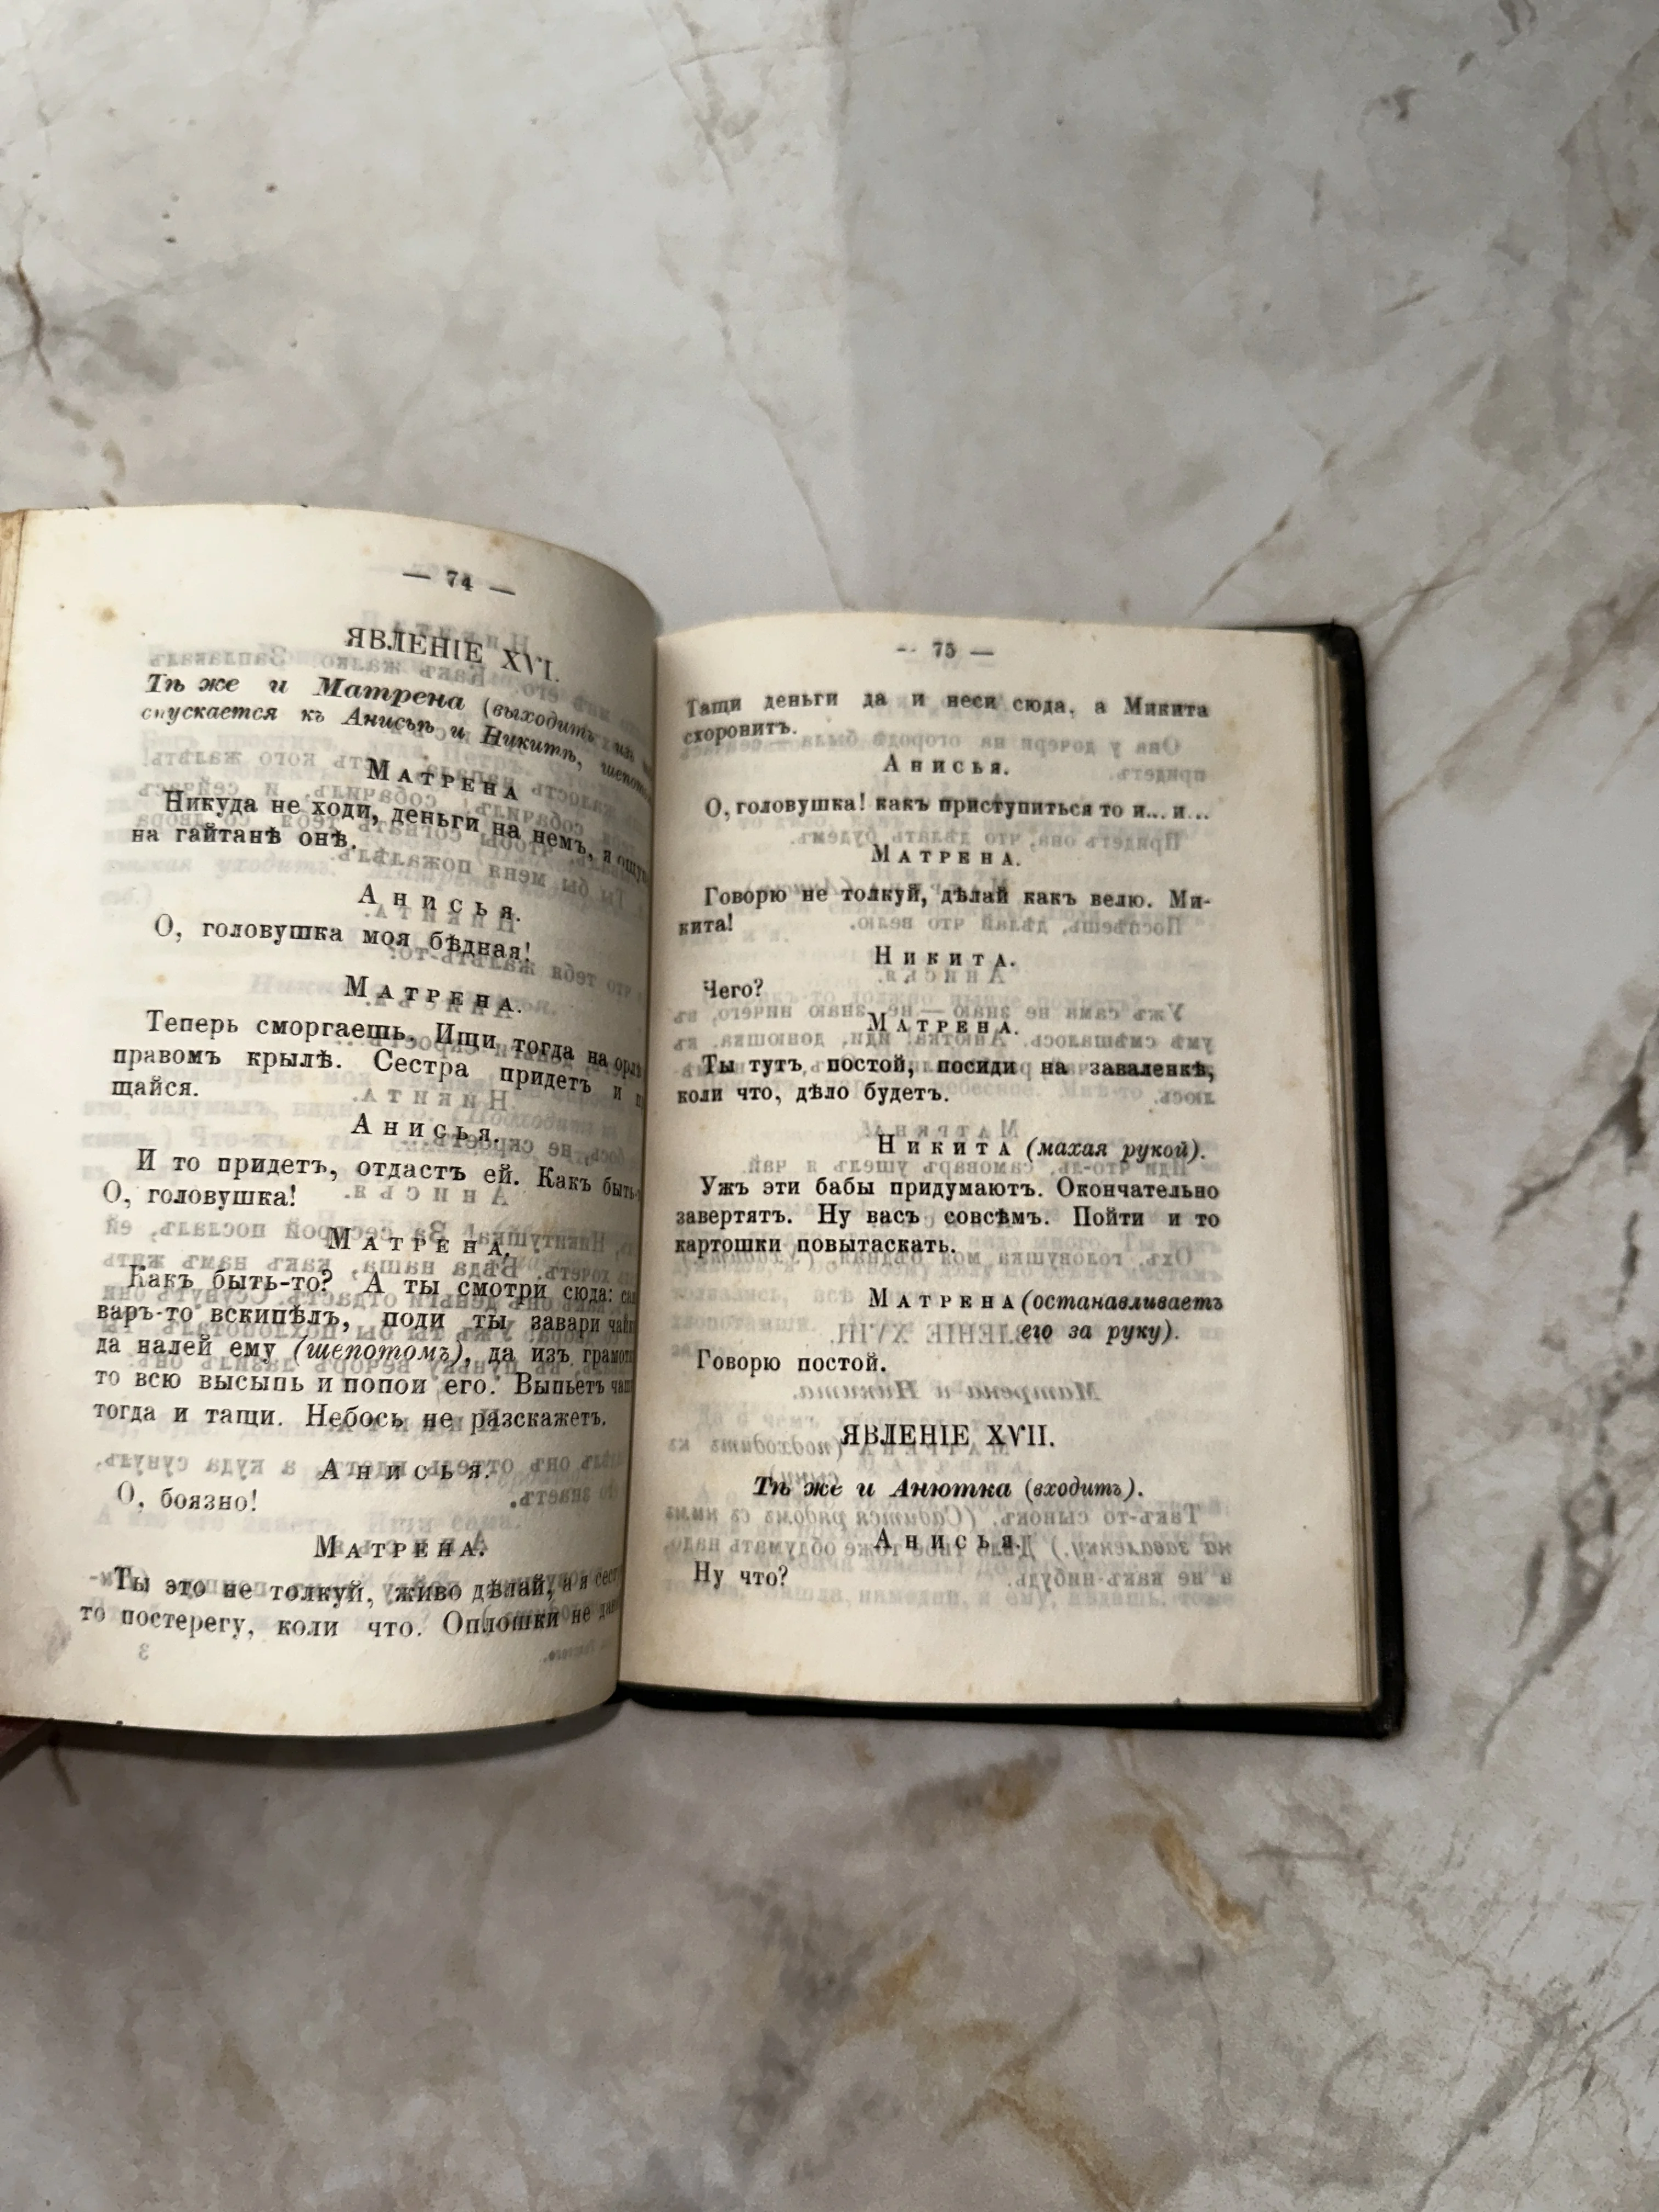 — 74 —
ЯВЛЕНІЕ XVI.
Тѣ же и Матрена (выходитъ изъ
спускается къ Анисьѣ и Никитѣ, шепотомъ
Матрена
Никуда не ходи, деньги на немъ, я
на гайтанѣ онѣ.
Анисья.
О, головушка моя бѣдная!
Матрена.
Теперь сморгаешь. Ищи тогда на орлѣ
правомъ крылѣ. Сестра придетъ и
щайся.
Анисья.
И то придетъ, отдастъ ей. Какъ быть-
О, головушка!
Матрена.
Какъ быть-то? А ты смотри сюда: са
варъ-то вскипѣлъ, поди ты завари
да налей ему (шепотомъ), да изъ
то всю высыпь и попои его. Выпьетъ
тогда и тащи. Небось не разскажетъ.
Анисья.
О, боязно!
Матрена.
Ты это не толкуй, живо дѣлай, а я
то постерегу, коли что. Оплошки не
3
-- 75 —
Тащи деньги да и неси сюда, а Микита
схоронитъ.
Анисья.
О, головушка! какъ приступиться то и... и...
Матрена.
Говорю не толкуй, дѣлай какъ велю. Ми-
кита!
Никита.
Чего?
Матрена.
Ты тутъ, постой, посиди на заваленкѣ,
коли что, дѣло будетъ.
Никита (махая рукой).
Ужъ эти бабы придумаютъ. Окончательно
завертятъ. Ну васъ совсѣмъ. Пойти и то
картошки повытаскать.
Матрена (останавливаетъ
его за руку).
Говорю постой.
ЯВЛЕНІЕ XVII.
Тѣ же и Анютка (входитъ).
Анисья.
Ну что?